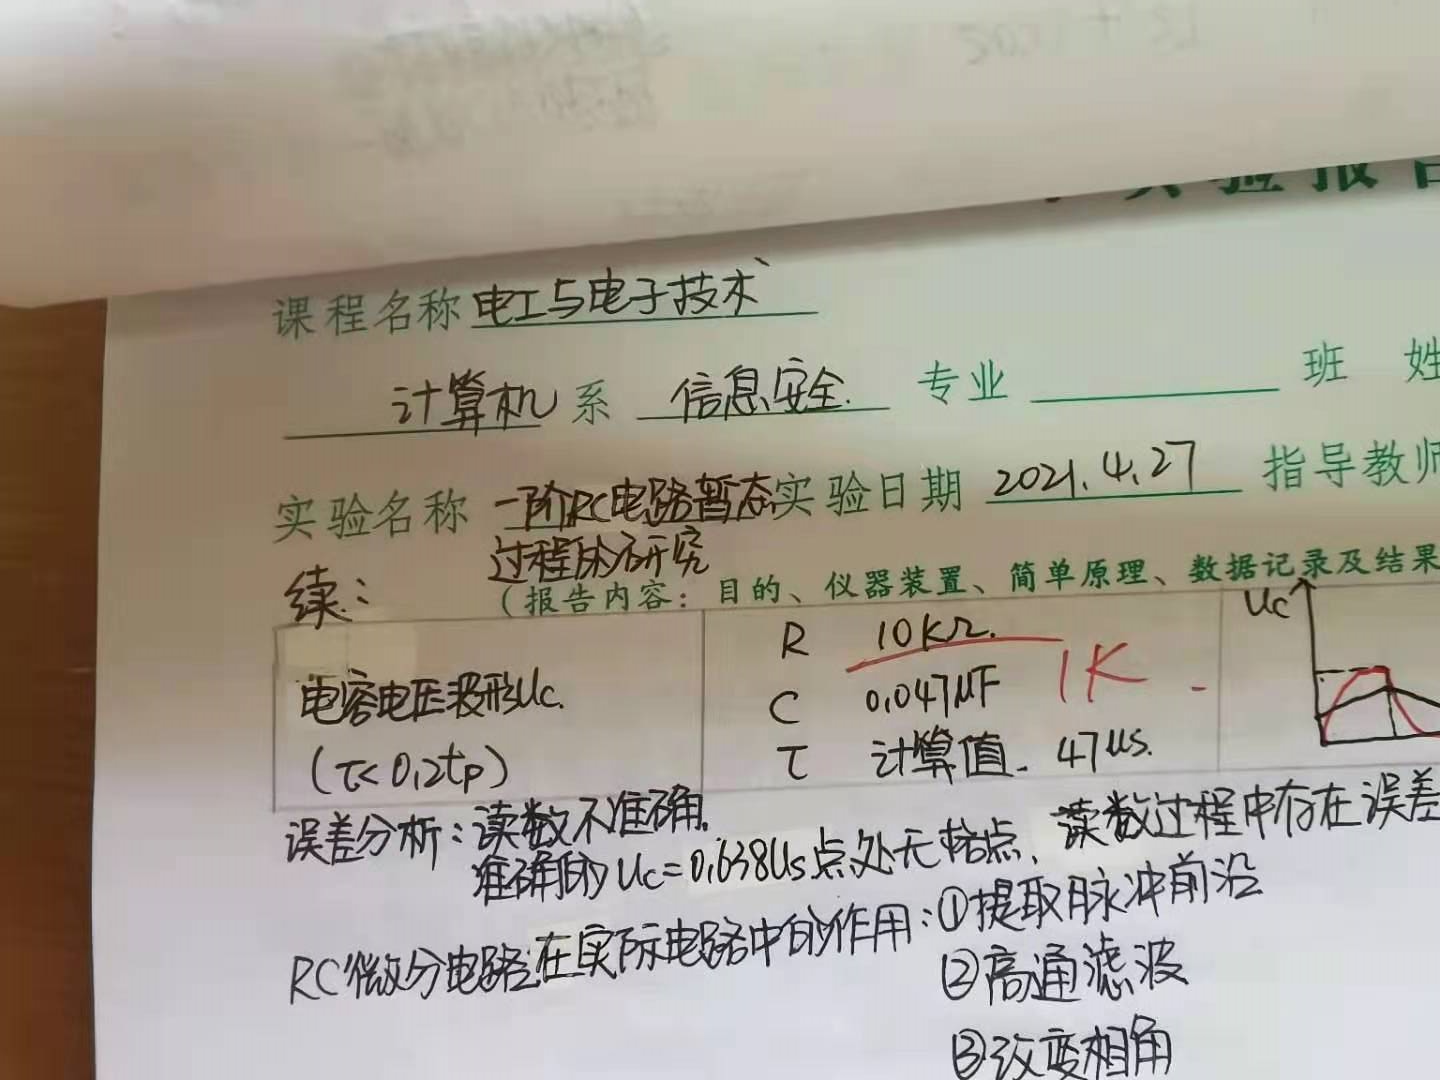 实验报告
课程名称 电工与电子技术
计算机 系 信息安全. 专业 班 姓
实验名称 一阶RC电路暂态 实验日期 2021.4.27 指导教师
过程的研究
续: (报告内容: 目的、仪器装置、简单原理、数据记录及结果
电容电压波形Uc.
(τ<0.2tp)
R 10KΩ.
1K
C 0.047μF
τ 计算值. 47us.
Uc
误差分析: 读数不准确.
准确的Uc=0.638Us点处无格点, 读数过程中存在误差
RC微分电路在实际电路中的作用: ①提取脉冲前沿
②高通滤波
③改变相角